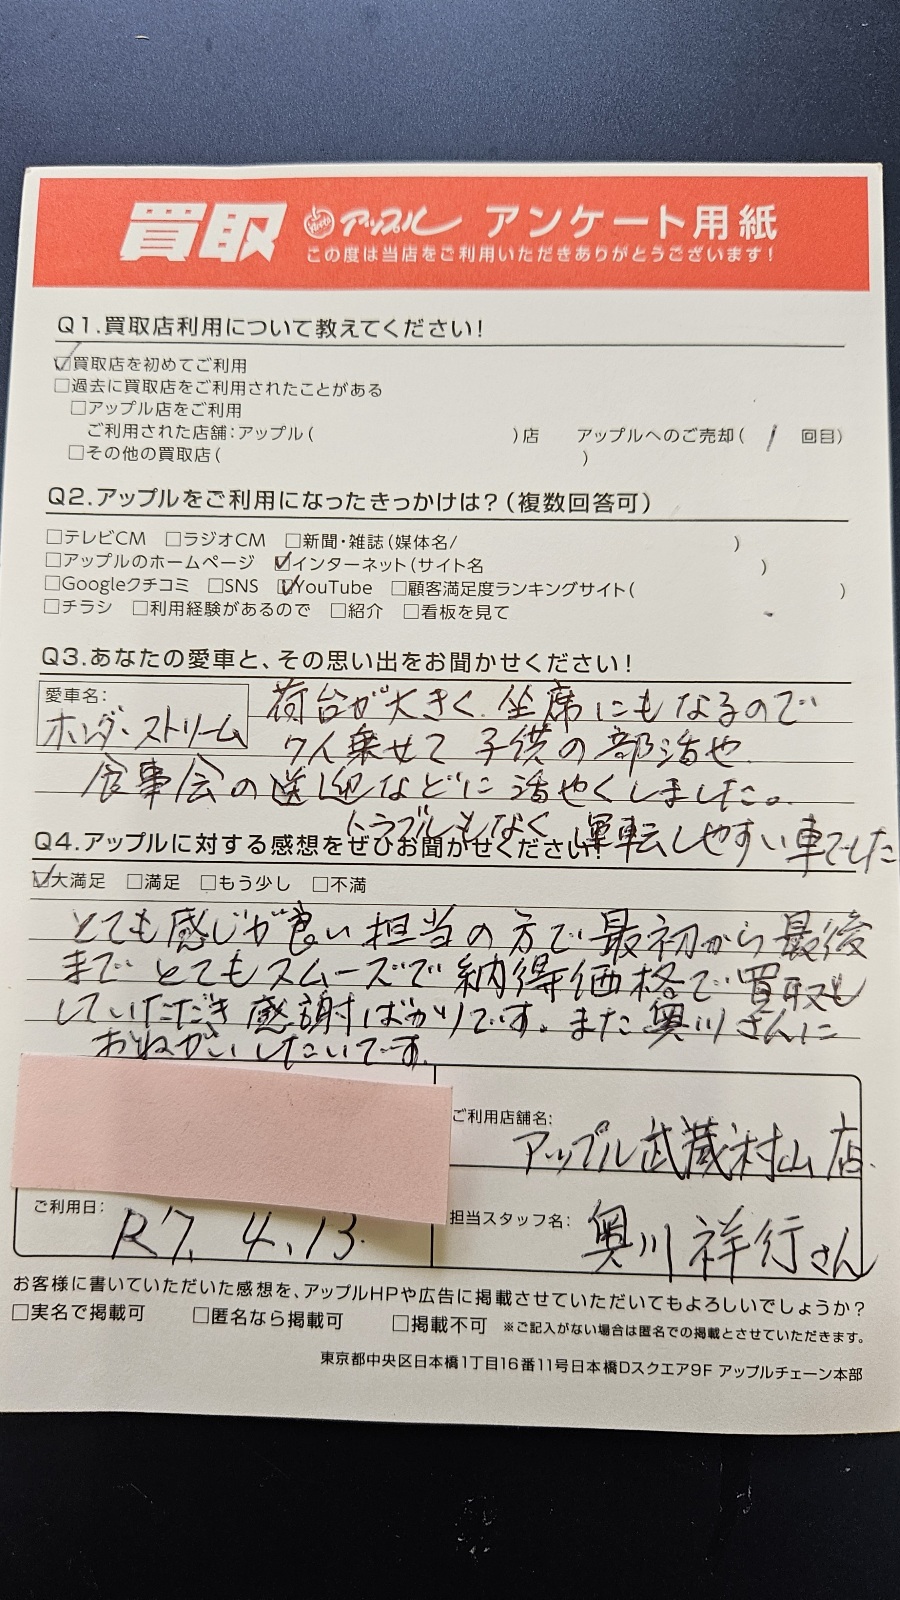 買取 アップル アンケート用紙
この度は当店をご利用いただきありがとうございます!
Q1.買取店利用について教えてください!
☑買取店を初めてご利用
□過去に買取店をご利用されたことがある
□アップル店をご利用
ご利用された店舗:アップル( )店 アップルへのご売却( 1 回目)
□その他の買取店( )
Q2.アップルをご利用になったきっかけは?(複数回答可)
□テレビCM □ラジオCM □新聞・雑誌(媒体名/ )
□アップルのホームページ ☑インターネット(サイト名 )
□Googleクチコミ □SNS ☑YouTube □顧客満足度ランキングサイト( )
□チラシ □利用経験があるので □紹介 □看板を見て
Q3.あなたの愛車と、その思い出をお聞かせください!
愛車名:
ホンダ・ストリーム
荷台が大きく、坐席にもなるので
7人乗せて子供の部活や
食事会の送迎などに活やくしました。
トラブルもなく運転しやすい車でした
Q4.アップルに対する感想をぜひお聞かせください!
☑大満足 □満足 □もう少し □不満
とても感じが良い担当の方で最初から最後
までとてもスムーズで納得価格で買取も
していただき感謝ばかりです。また奥川さんに
おねがいしたいです。
ご利用店舗名:
アップル武蔵村山店
ご利用日:
R7.4.13.
担当スタッフ名:
奥川祥行さん
お客様に書いていただいた感想を、アップルHPや広告に掲載させていただいてもよろしいでしょうか?
□実名で掲載可 □匿名なら掲載可 □掲載不可 ※ご記入がない場合は匿名での掲載とさせていただきます。
東京都中央区日本橋1丁目16番11号日本橋Dスクエア9F アップルチェーン本部